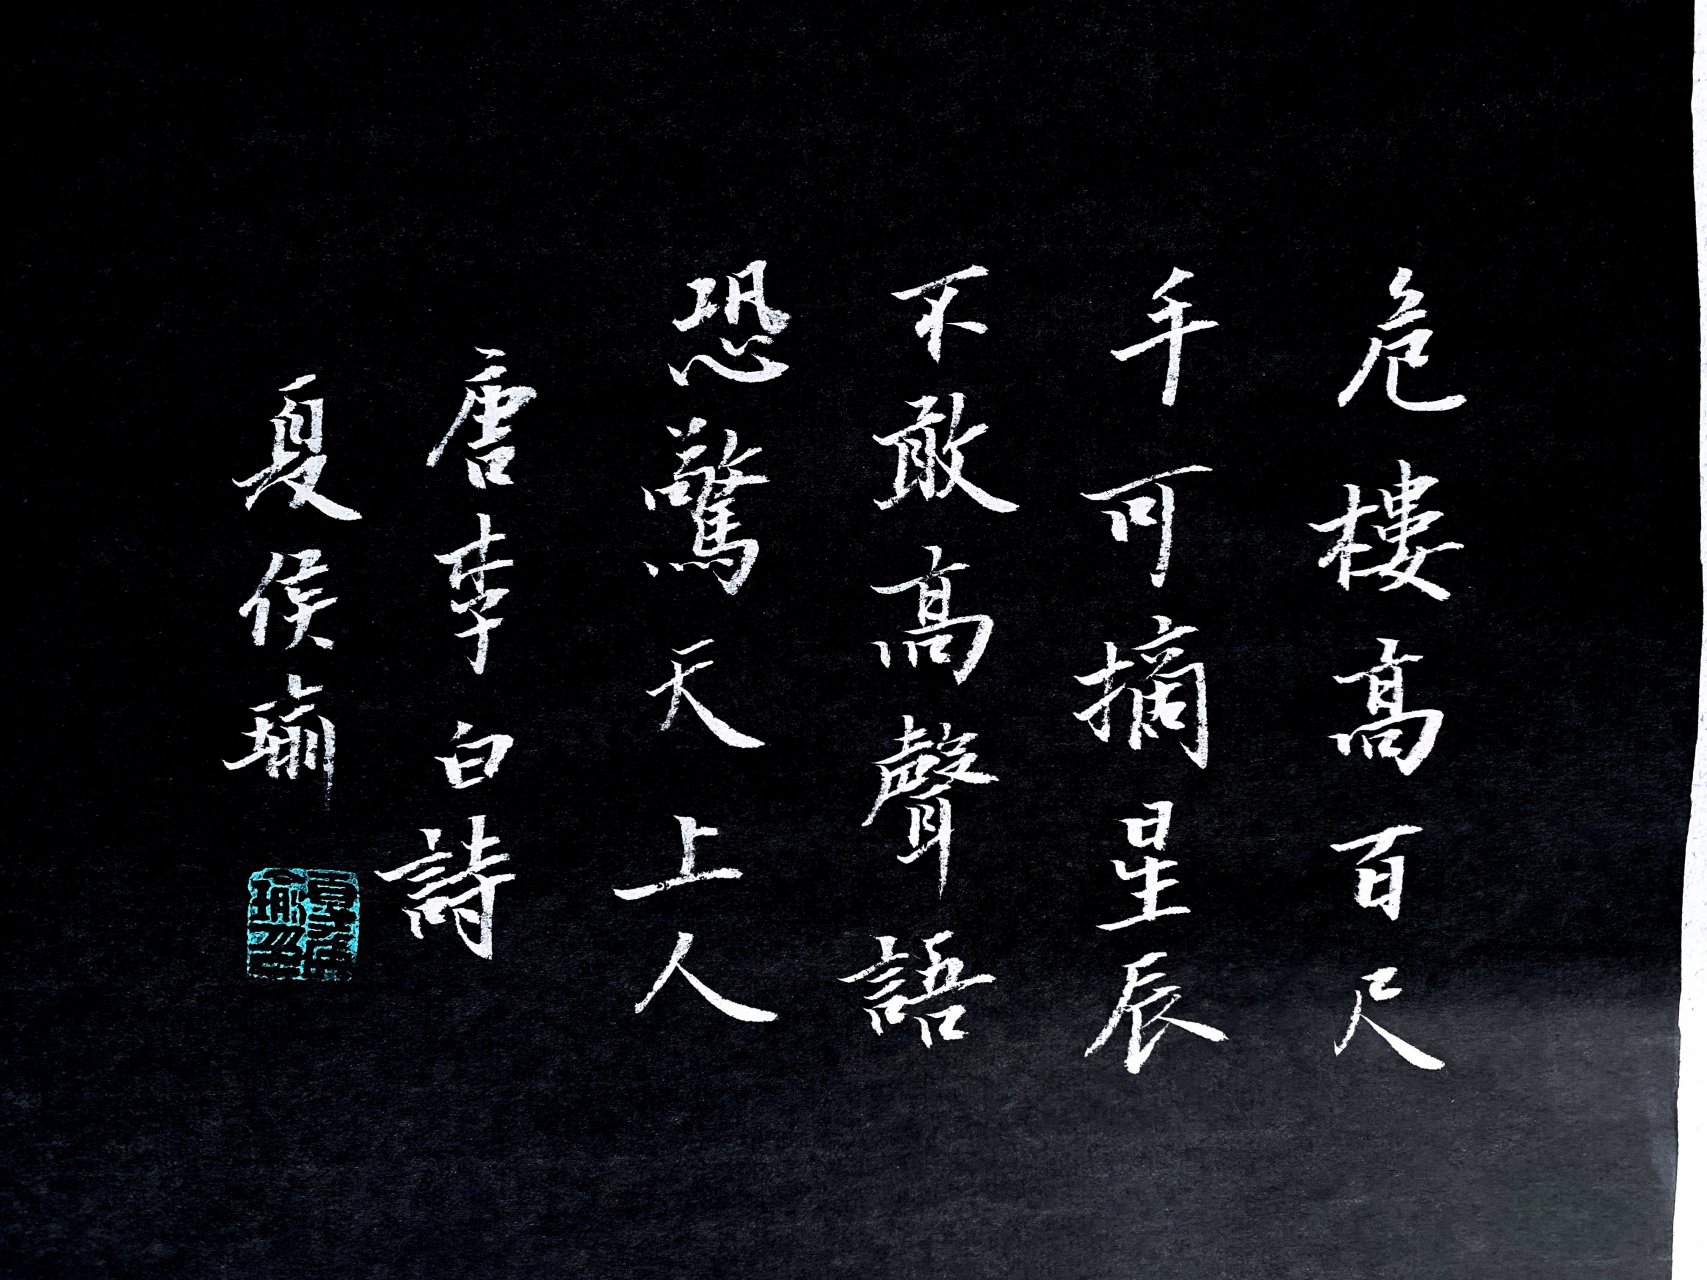 危樓高百尺
手可摘星辰
不敢高聲語
恐驚天上人
唐李白詩
夏侯瑜